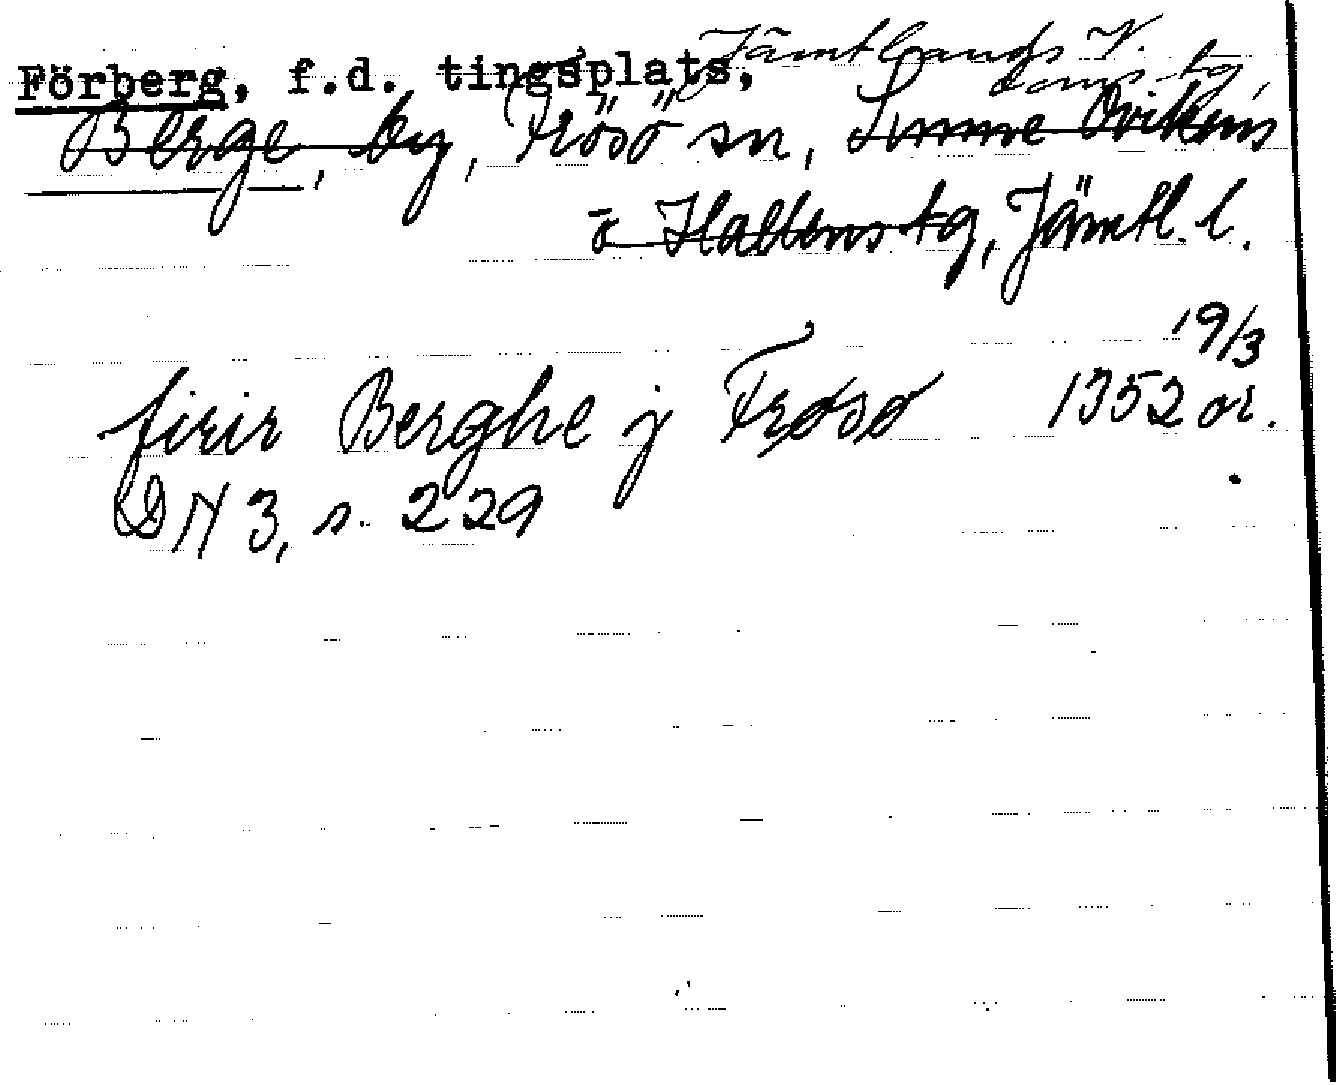 Förberg, f.d. tingsplats, Jämtlands V.
doms. tg
Berge, by, Frösö sn, Sunne Ovikens
o Hallens tg, Jämtl. l.
19/3
firir Berghe j Frøsø 1352 or.
DN 3, s. 229